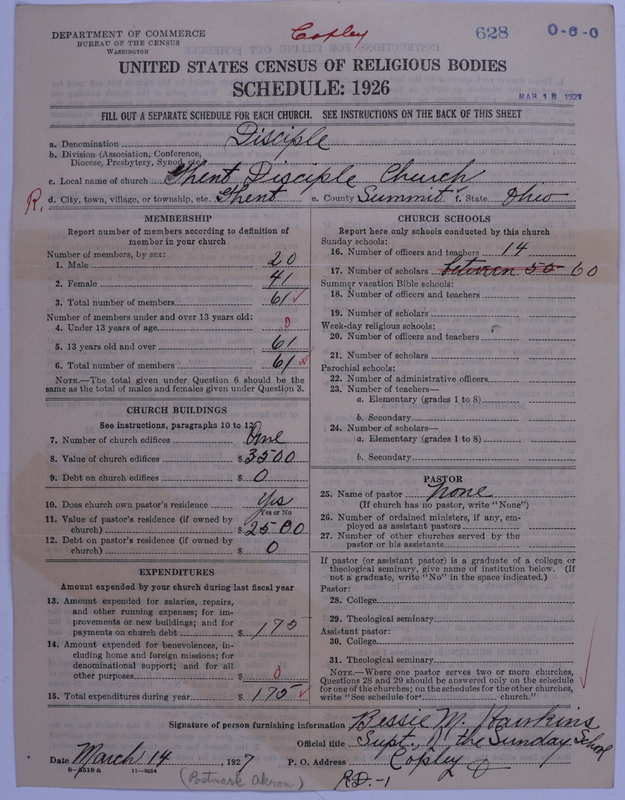 Copley
628
0-6-0
DEPARTMENT OF COMMERCE
BUREAU OF THE CENSUS
WASHINGTON
UNITED STATES CENSUS OF RELIGIOUS BODIES
SCHEDULE: 1926
MAR 18 1927
FILL OUT A SEPARATE SCHEDULE FOR EACH CHURCH. SEE INSTRUCTIONS ON THE BACK OF THIS SHEET
a. Denomination Disciple
b. Division (Association, Conference, Diocese, Presbytery, Synod, etc.)
c. Local name of church Ghent Disciple Church
R. d. City, town, village, or township, etc. Ghent e. County Summit f. State Ohio
MEMBERSHIP
Report number of members according to definition of
member in your church
Number of members, by sex:
1. Male 20
2. Female 41
3. Total number of members 61 ✓
Number of members under and over 13 years old:
4. Under 13 years of age 0
5. 13 years old and over 61
6. Total number of members 61 ✓
NOTE.—The total given under Question 6 should be the
same as the total of males and females given under Question 3.
CHURCH BUILDINGS
See instructions, paragraphs 10 to 12
7. Number of church edifices One
8. Value of church edifices $3500
9. Debt on church edifices $ 0
10. Does church own pastor's residence Yes
Yes or No
11. Value of pastor's residence (if owned by
church) $2500
12. Debt on pastor's residence (if owned by
church) $ 0
EXPENDITURES
Amount expended by your church during last fiscal year
13. Amount expended for salaries, repairs,
and other running expenses; for im-
provements or new buildings; and for
payments on church debt $ 175
14. Amount expended for benevolences, in-
cluding home and foreign missions; for
denominational support; and for all
other purposes $ 0
15. Total expenditures during year $ 175 ✓
CHURCH SCHOOLS
Report here only schools conducted by this church
Sunday schools:
16. Number of officers and teachers 14
17. Number of scholars between 50 - 60
Summer vacation Bible schools:
18. Number of officers and teachers
19. Number of scholars
Week-day religious schools:
20. Number of officers and teachers
21. Number of scholars
Parochial schools:
22. Number of administrative officers
23. Number of teachers—
a. Elementary (grades 1 to 8)
b. Secondary
24. Number of scholars—
a. Elementary (grades 1 to 8)
b. Secondary
PASTOR
25. Name of pastor None
(If church has no pastor, write "None")
26. Number of ordained ministers, if any, em-
ployed as assistant pastors
27. Number of other churches served by the
pastor or his assistants
If pastor (or assistant pastor) is a graduate of a college or
theological seminary, give name of institution below. (If
not a graduate, write "No" in the space indicated.)
Pastor:
28. College
29. Theological seminary
Assistant pastor:
30. College
31. Theological seminary
NOTE.—Where one pastor serves two or more churches,
Questions 28 and 29 should be answered only on the schedule
for one of the churches; on the schedules for the other churches,
write "See schedule for church."
Signature of person furnishing information Bessie W. Hawkins
Official title Supt. of the Sunday School
Date March 14, 1927 P. O. Address Copley O
8-5518 a 11-9054
(Postmark Akron) R.D.-1